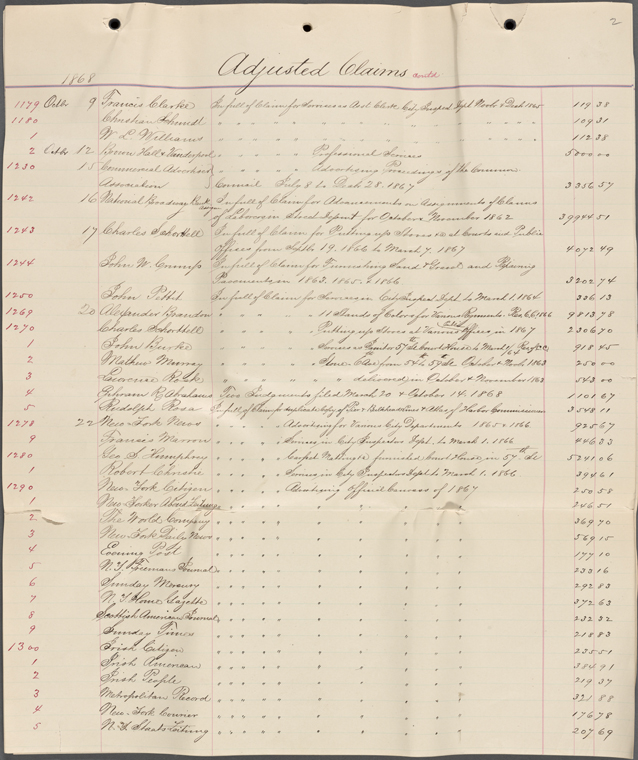 2
Adjusted Claims contd
1868
1179 Octbr 9 Francis Clarke In full of Claim for Services as Clerk City Inspect Dept 1865 119 38
1180 Christian Schmidt " " " " " " 109 31
1 W. L. Williams " " " " " " 112 38
2 Octbr 12 Hall & Vanderpoel " " " " " Professional Services 5000 00
1230 15 Commercial Advertiser " " " " " Advertising Proceedings of the Common
Association Council July 8 to Decbr 28. 1867 3356 57
1242 16 National Broadway Bank In full of Claim for Advancements on Assignments of Claims
of Laborers on Street Depart for October, November 1862 3994 51
1243 17 Charles Schortell In full of Claim for Putting up Stoves &c at Courts and Public
Offices from Septbr 19. 1866 to March 7. 1867 4072 49
1244 John W. In full of Claim for Furnishing Sand & Gravel and Repairing
Pavements in 1863. 1865 & 1866 3202 74
1250 John Pettit In full of Claim for Services in City Inspect Dept. to March 1. 1864 336 13
1269 20 Alexander Brandon " " " " 11 Stands of Colors for Various Regiments 1866 9813 78
1270 Charles Schortell " " " " Putting up Stoves at Various Offices in 1867 2306 70
1 John Burke " " " " Services Janitor 57th St. Court House to March 918 45
2 Mathew Murray " " " " Stone from 54th to 57th St. October & March 1863 250 00
3 Rock " " " " " delivered in October & November 1863 543 00
4 Ephraim R. Abrahams Two Judgments filed March 20 & October 14. 1868 1101 67
5 Rudolph Rosa In full of Claim for duplicate copy of Pier & Bulkhead lines of Harbor Commissioners 3548 11
1278 22 New-York News " " " " Advertising for Various City Departments 1865 & 1866 925 67
9 Francis " " " " Services in City Inspectors Dept. to March 1. 1866 446 33
1280 Geo S. Humphrey " " " " Carpet Matting &c furnished Court House in 57th St. 5041 06
1 Robert " " " " Services in City Inspectors Dept to March 1. 1866 394 61
1290 New York Citizen " " " " Advertising Official Canvass of 1867 250 58
1 New-Yorker Abend Zeitung " " " " " " " 246 51
2 The World Company " " " " " " " 369 70
3 New-York Daily News " " " " " " " 569 15
4 Evening Post " " " " " " " 177 10
5 N. Y. Freemans Journal " " " " " " " 233 16
6 Sunday Mercury " " " " " " " 292 83
7 N. Y. Home Gazette " " " " " " " 372 63
8 Scottish American Journal " " " " " " " 232 32
9 Sunday Times " " " " " " " 218 83
1300 Irish Citizen " " " " " " " 235 51
1 Irish American " " " " " " " 384 91
2 Irish People " " " " " " " 219 37
3 Metropolitan Record " " " " " " " 321 88
4 New-York Courier " " " " " " " 176 78
5 N.Y. Staats Zeitung " " " " " " " 207 69